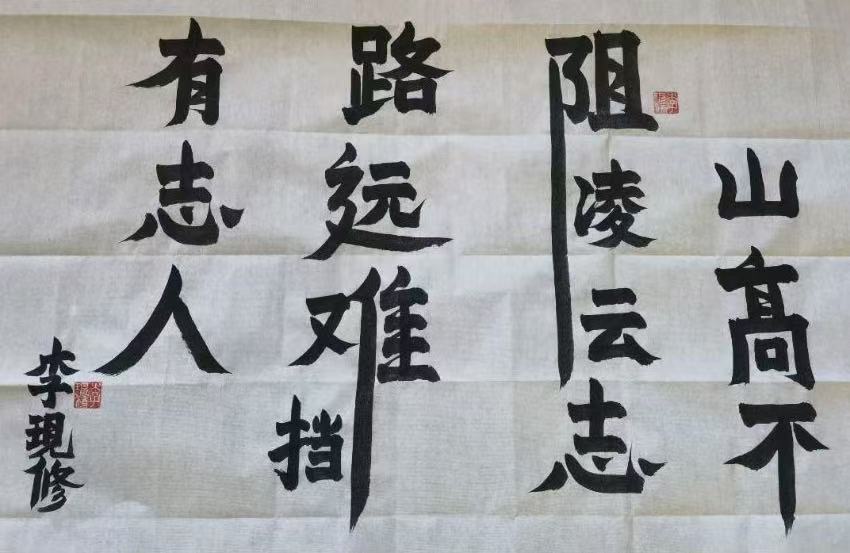 山高不
阻凌云志
路远难挡
有志人
李現修